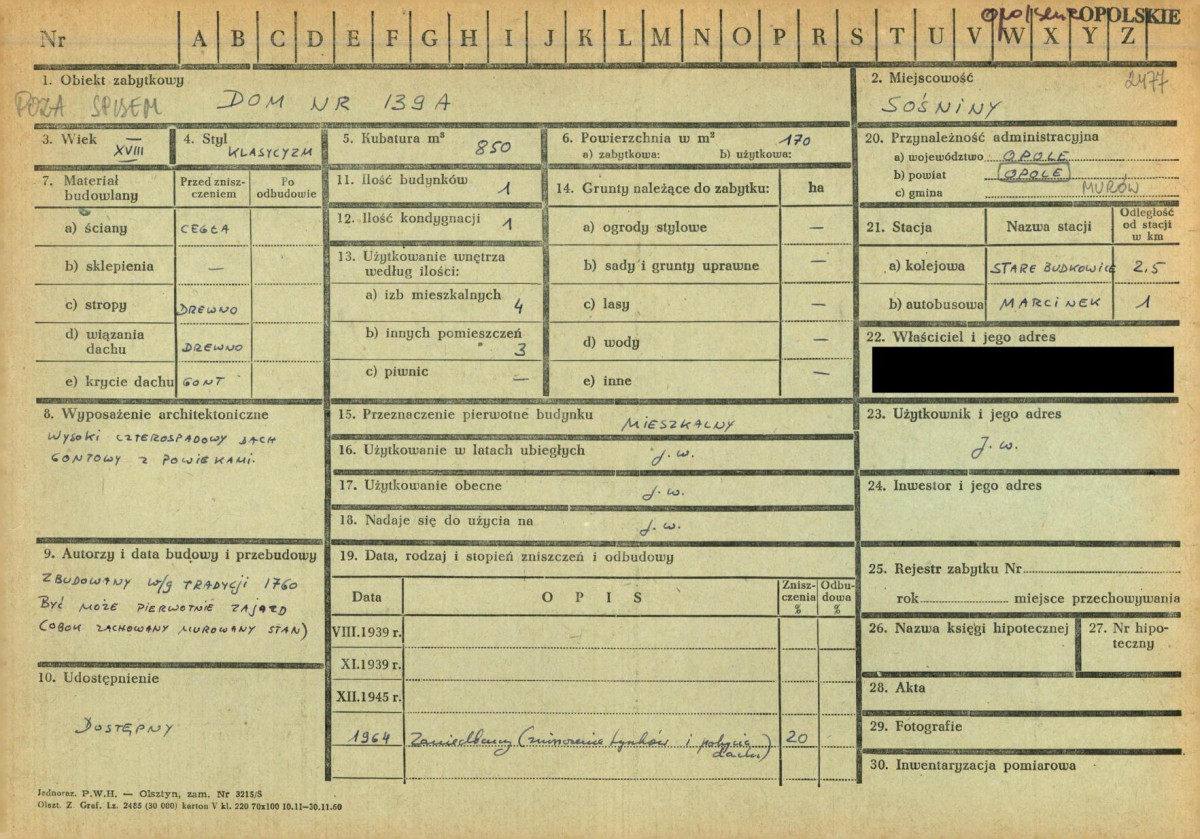 opolskie OPOLSKIE
Nr A B C D E F G H I J K L M N O P R S T U V W X Y Z
1. Obiekt zabytkowy
POZA SPISEM
DOM NR 139A
2. Miejscowość
2477
SOŚNINY
3. Wiek
XVIII
4. Styl
KLASYCYZM
5. Kubatura m³
850
6. Powierzchnia w m²
170
a) zabytkowa: b) użytkowa:
20. Przynależność administracyjna
a) województwo OPOLE
b) powiat OPOLE
c) gmina MURÓW
7. Materiał budowlany
Przed znisz-
czeniem
Po
odbudowie
a) ściany CEGŁA
b) sklepienia —
c) stropy DREWNO
d) wiązania
dachu DREWNO
e) krycie dachu GONT
11. Ilość budynków 1
12. Ilość kondygnacji 1
13. Użytkowanie wnętrza
według ilości:
a) izb mieszkalnych
4
b) innych pomieszczeń
3
c) piwnic —
14. Grunty należące do zabytku: ha
a) ogrody stylowe —
b) sady i grunty uprawne —
c) lasy —
d) wody —
e) inne —
21. Stacja
Nazwa stacji
Odległość
od stacji
w km
a) kolejowa STARE BUDKOWICE 2,5
b) autobusowa MARCINEK 1
22. Właściciel i jego adres
8. Wyposażenie architektoniczne
WYSOKI CZTEROSPADOWY DACH
GONTOWY Z POWIEKAMI.
15. Przeznaczenie pierwotne budynku
MIESZKALNY
16. Użytkowanie w latach ubiegłych j.w.
17. Użytkowanie obecne j.w.
18. Nadaje się do użycia na j.w.
23. Użytkownik i jego adres
J.w.
24. Inwestor i jego adres
9. Autorzy i data budowy i przebudowy
ZBUDOWANY W/G TRADYCJI 1760
BYĆ MOŻE PIERWOTNIE ZAJAZD
(OBOK ZACHOWANY MUROWANY STAN)
10. Udostępnienie
DOSTĘPNY
19. Data, rodzaj i stopień zniszczeń i odbudowy
Data
OPIS
Znisz-
czenia
%
Odbu-
dowa
%
VIII.1939 r.
XI.1939 r.
XII.1945 r.
1964 Zaniedbany (zniszczenie tynków i pokrycia 20
dachu)
25. Rejestr zabytku Nr
rok miejsce przechowywania
26. Nazwa księgi hipotecznej
27. Nr hipo-
teczny
28. Akta
29. Fotografie
30. Inwentaryzacja pomiarowa
Jednoraz. P.W.H. — Olsztyn, zam. Nr 3215/S
Olszt. Z. Graf. Lz. 2485 (30 000) karton V kl. 220 70x100 10.11—30.11.60